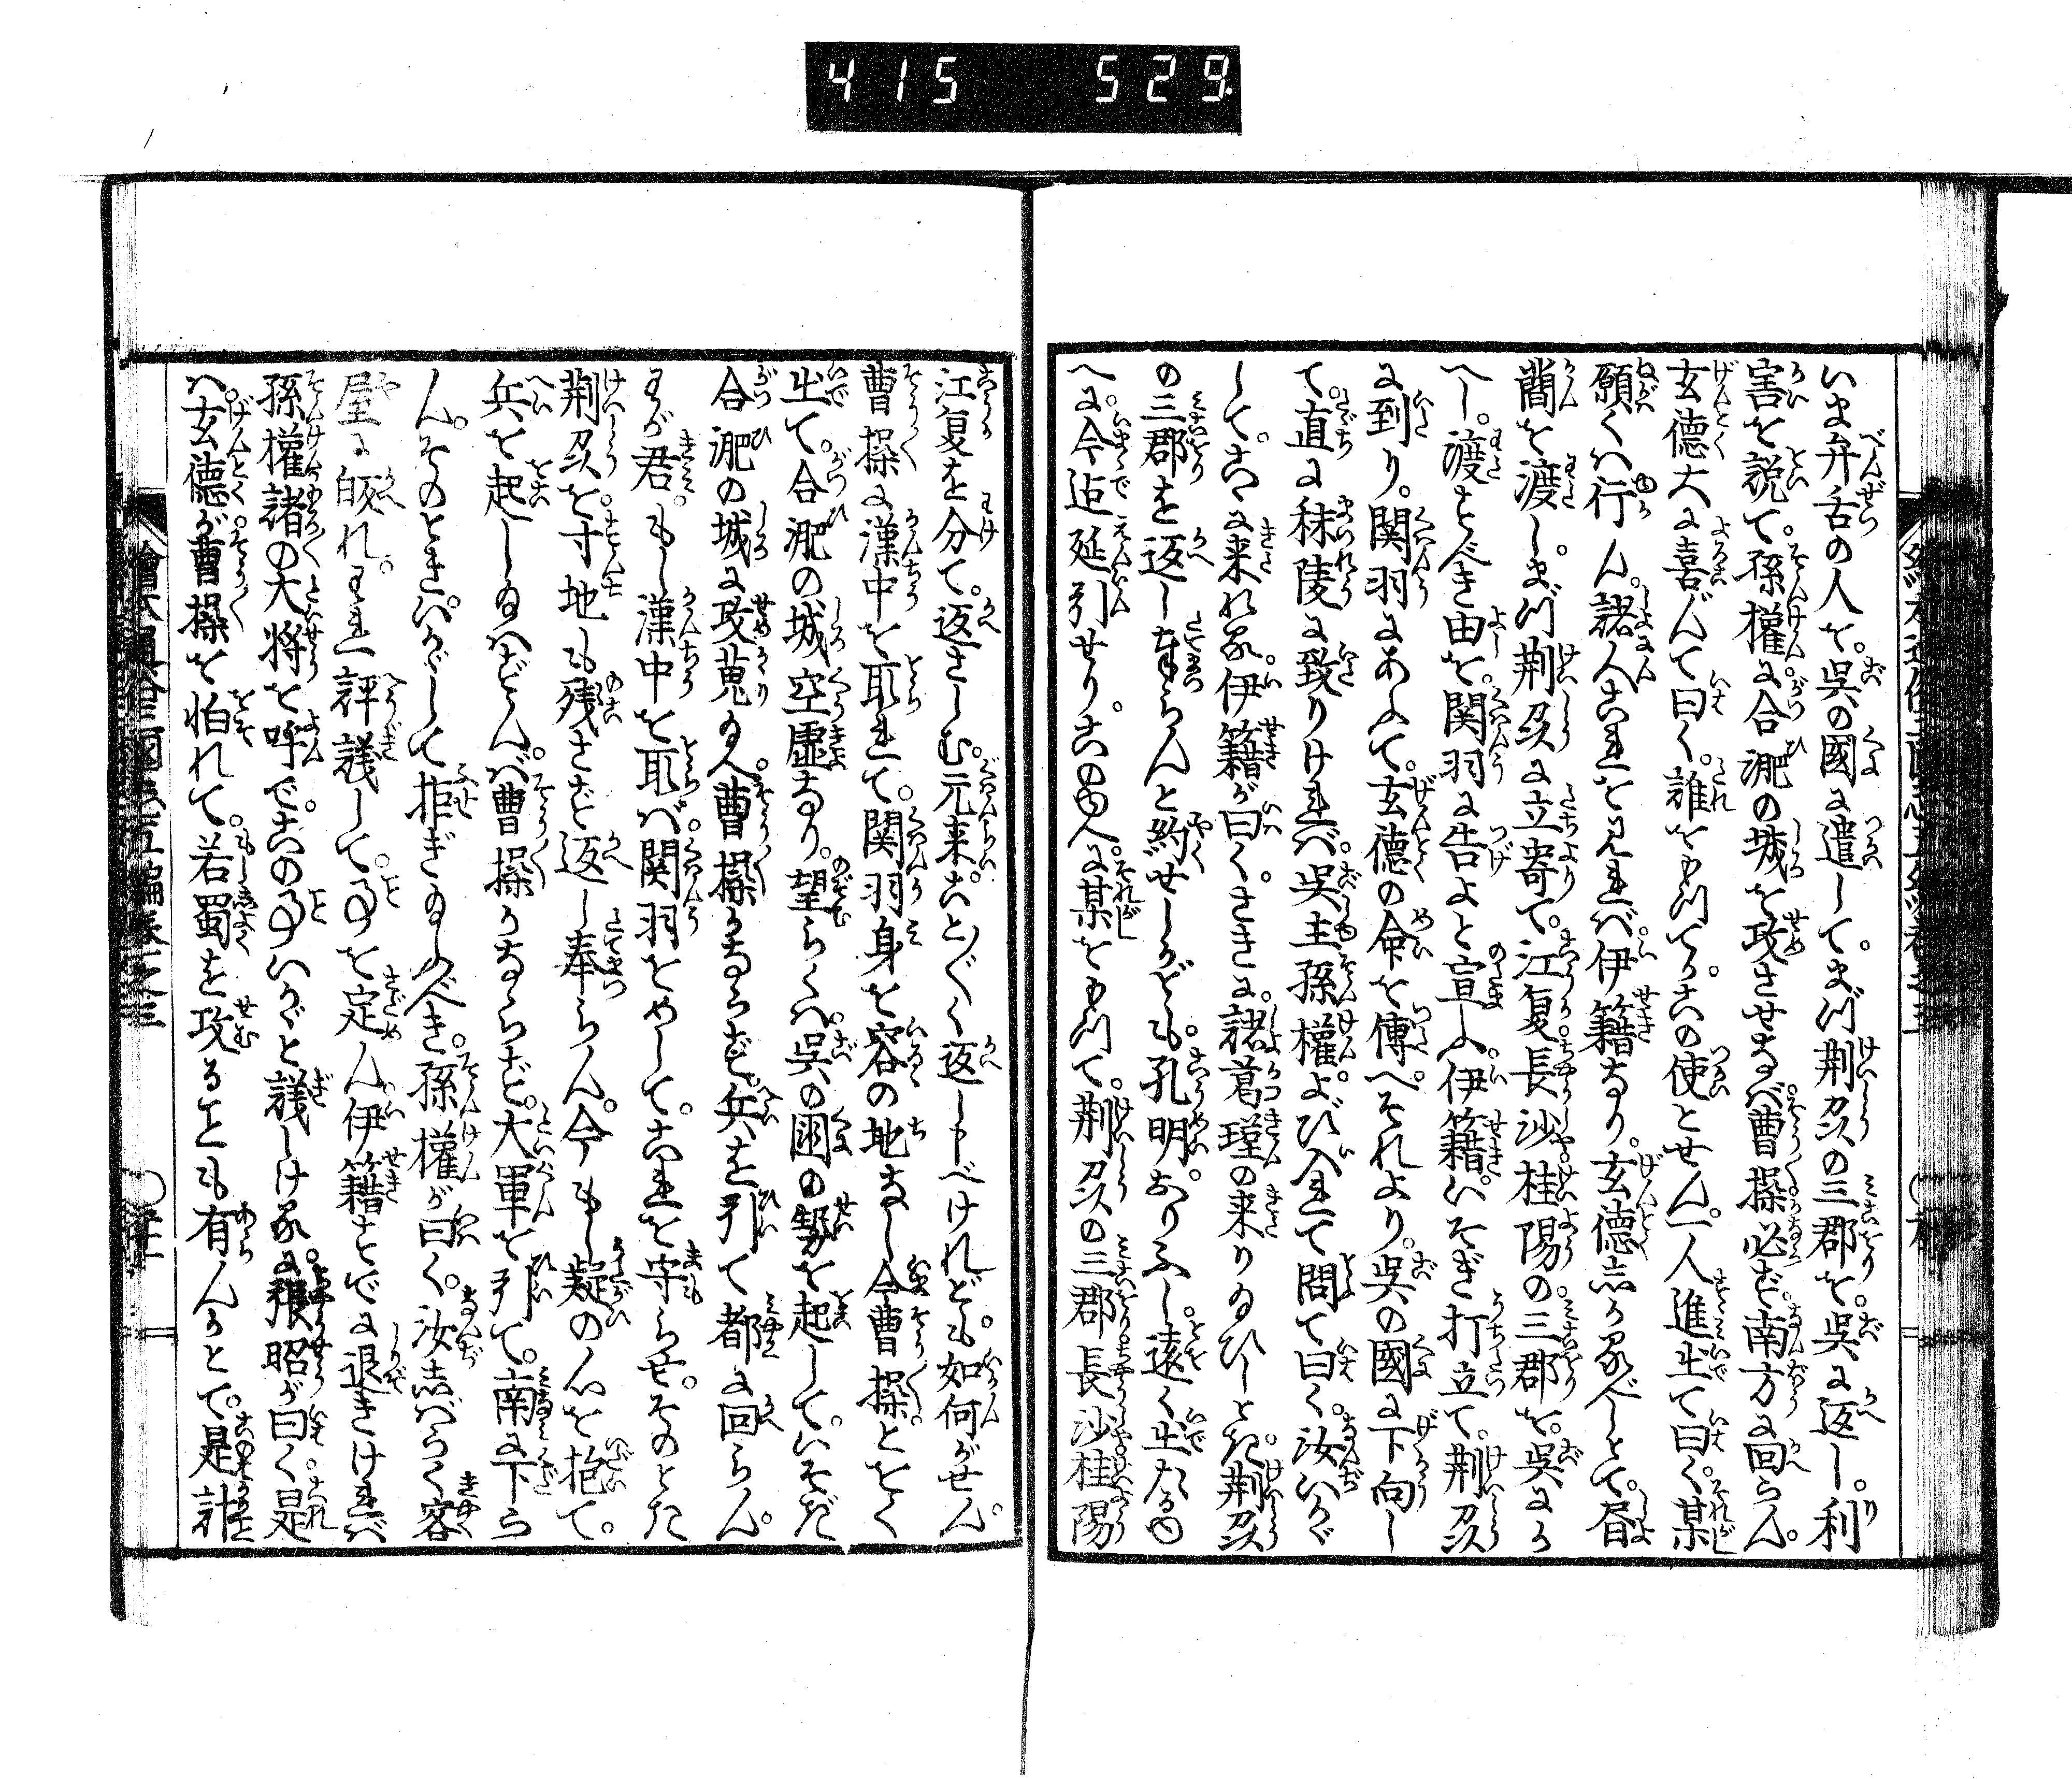 415 529
いま弁舌の人を。呉の國に遣して。まづ荆刕の三郡を。呉に返し。利
害を説て。孫權に合淝の城を攻させなば曹操必ず南方に回らん。
玄德大に喜んで曰く。誰をもつてか。この使とせん。一人進出て曰く。某
願くハ行ん。諸人これをみれば。伊籍なり。玄德志かるべしとて。眉
蕳を渡し。まづ荆刕に立寄て。江夏長沙桂陽の三郡を。呉にか
へし。渡すべき由を。関羽に告よと宣ふ。伊籍。いそぎ打立て。荆刕
に到り。関羽にあふて。玄德の命を傳へ。それより。呉の國に下向し
て。直に秣陵に致りけれバ。呉主孫權。よび入れて問て曰く。汝いかゞ
して。こゝに来れるゾ。伊籍が曰く。さきに。諸葛瑾の来りゐひしとき。荆刕
の三郡を返し奉らんと約ぜしかども。孔明。おりふし。遠く出たるゆ
へに。今迠延引せり。このゆへに。某をもつて。荆刕の三郡長沙桂陽
江夏を分て。返さしむ。元来ことごとく返しもべけれども。如何がせん。
曹操に漢中を取れて。関羽身を容るの地なし。今曹操とをく
出て。合淝の城空虚なり。望らくハ。呉の國の勢を起して。いそぎ
合淝の城に攻蒐ゐへ。曹操かならず。兵を引て都に回らん。
わが君。もし漢中を取ば。関羽をめして。これを守らせ。そのとき
荆刕を。寸地も残さず返し奉らん。今もし疑の心を抱て。
兵を起しゐはずんバ。曹操かならず。大軍を引て。南に下ら
ん。そのときハかゞして拒ぎゐふべき。孫權が曰く。汝志ばらく客
屋に皈れ。われ評議して。事を定ん。伊籍すでに退きけれバ
孫權諸の大将を呼で。この事いかゞと議しけるに。張昭が曰く。是
ハ。玄德が曹操を怕れて。若蜀を攻ることも有んかとて。是計